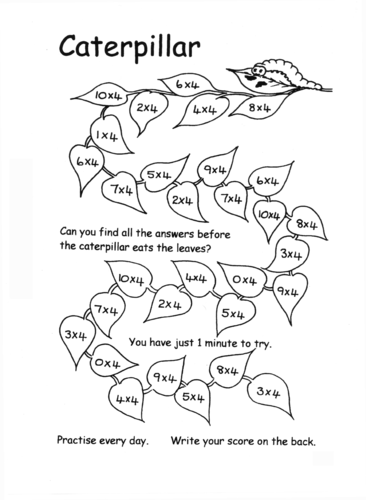 Caterpillar
6x4
10x4 2x4 4x4 8x4
1x4
6x4 7x4 5x4 2x4 9x4 7x4 6x4
10x4 8x4
Can you find all the answers before
the caterpillar eats the leaves?
3x4
10x4 2x4 4x4 5x4 0x4 9x4
7x4
3x4
You have just 1 minute to try.
0x4 4x4 9x4 5x4 8x4 3x4
Practise every day. Write your score on the back.